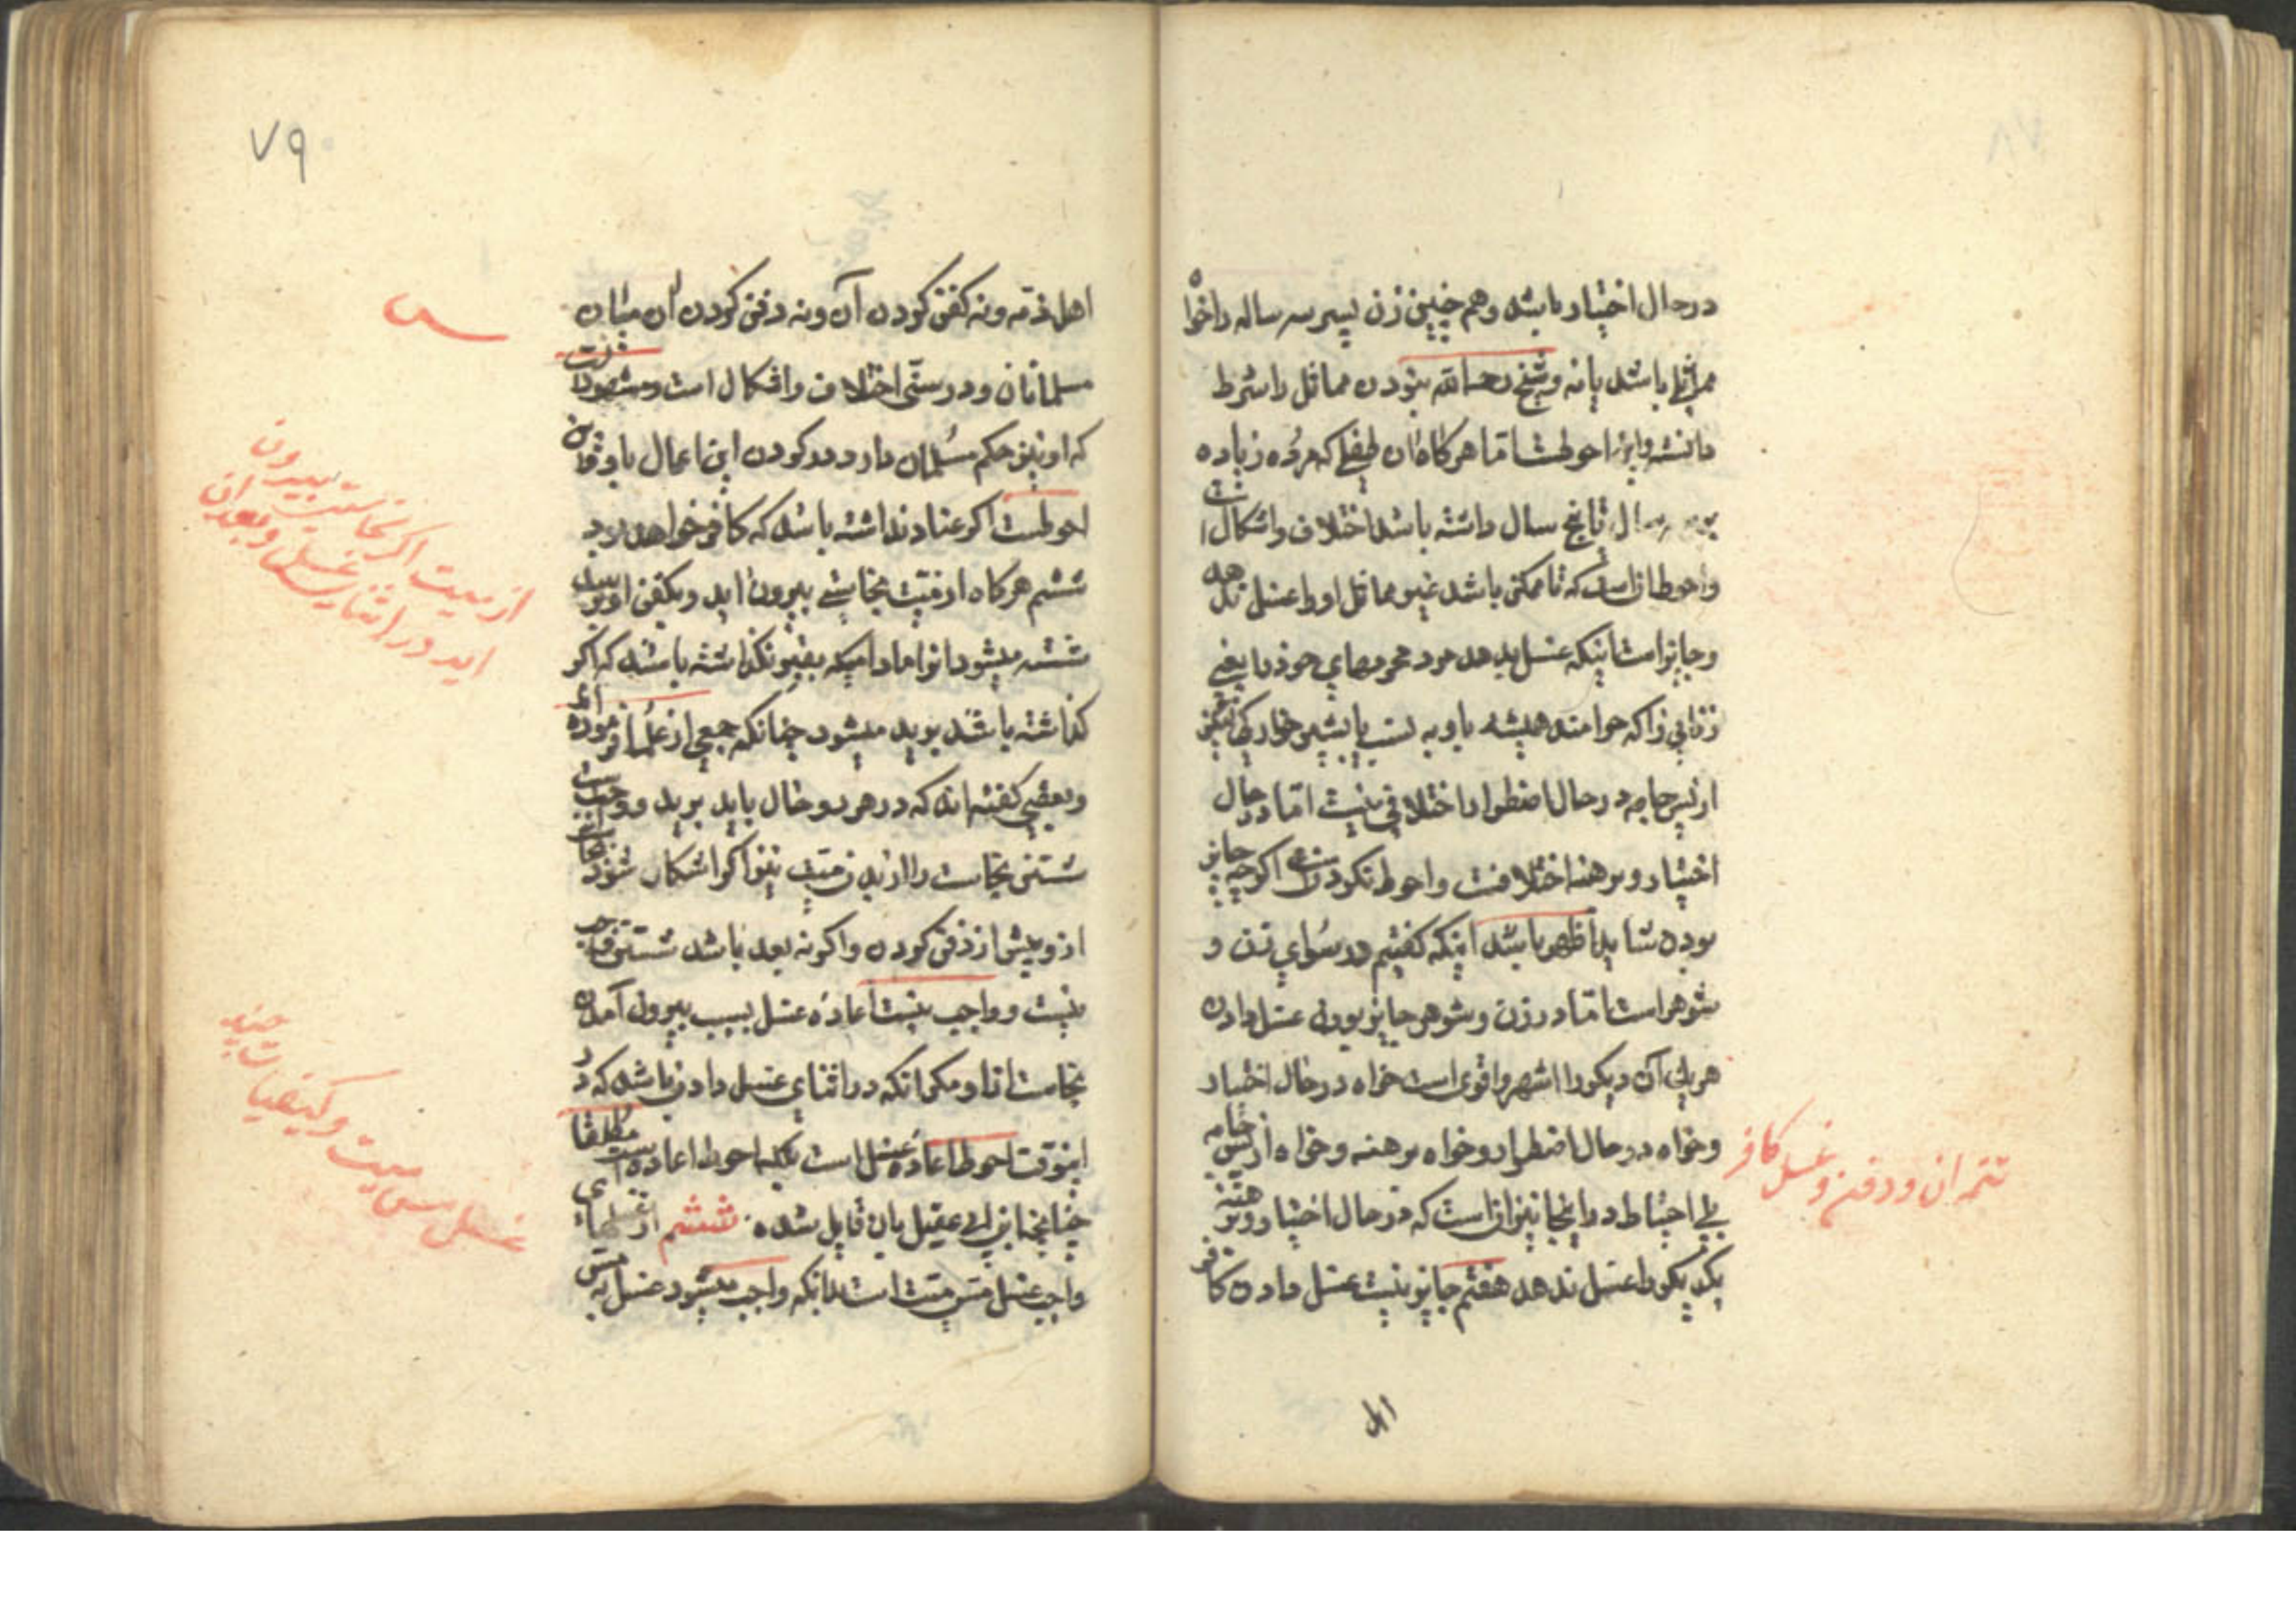 در حال اختیار باشد و هم چنین زن پسر سه ساله را خواه
مماثل باشد یا نه و شیخ رحمه الله نبودن مماثل را شرط
دانسته و این احوطست اما هرگاه آن طفلی که مرده زیاده
سال تا پنج سال داشته باشد اختلاف و اشکال است
و احوط آن است که تا ممکن باشد غیر مماثل او را غسل ندهد
و جایز است اینکه غسل بدهد مرد محرمهای خود یا یعنی
زنانی را که حرامند همیشه باو به نسب یا بشیر خوارکی
از پس جامه در حال اضطرار اختلافی نیست اما در حال
اختیار و برهنه اختلافست و احوط نکردنست اگر چه جایز
بودن شاید اظهر باشد اینکه گفتیم در سوای زن و
شوهر است اما در زن و شوهر جایز بودن غسل دادن
هر یکی آن دیگر را اشهر و اقوی است خواه در حال اختیار
و خواه در حال اضطرار و خواه برهنه و خواه از پس جامه
بلی احتیاط در اینجا نیز آن است که در حال اختیار و برهنه
یکدیگر را غسل ندهد هفتم جایز نیست غسل دادن کافر
تتمه ان و دفن و غسل کافر
اهل
۷۹
اهل ذمه و نه کفن کردن آن و نه دفن کردن آن میان
مسلمانان و در سنی اختلاف و اشکال است و مشهور آنست
که او نیز حکم مسلمان دارد و در کردن این اعمال باو
احوطست اگر عناد نداشته باشد که کافر خواهد بود
ششم هرگاه از میت نجاستی بیرون اید و بکفن او برسد
شسته میشود انرا مادامیکه بقبر نگذاشته باشند که اگر
گذاشته باشند بریده میشود چنانکه جمعی از علما فرموده اند
و بعضی گفته اند که در هر دو حال باید برید و واجبست
شستن نجاست را از بدن میت نیز اگر اشکار شود نجاست
ازو پیش از دفن کردن و اگر نه بعد باشد شستن واجب
نیست و واجب نیست اعاده غسل بسبب بیرون آمدن
نجاست ازو مگر انکه در اثنای غسل دادن باشد که در
اینوقت احوط اعاده غسل است بلکه احوط اعاده است مطلقا
چنانچه ابن ابی عقیل بان قایل شده ششم از غسلهای
واجب غسل مس میت است بدانکه واجب میشود غسل به مس
از میت اگر نجاست بیرون
اید در اثنای غسل و بعد ان
غسل مس میت و کیفیات